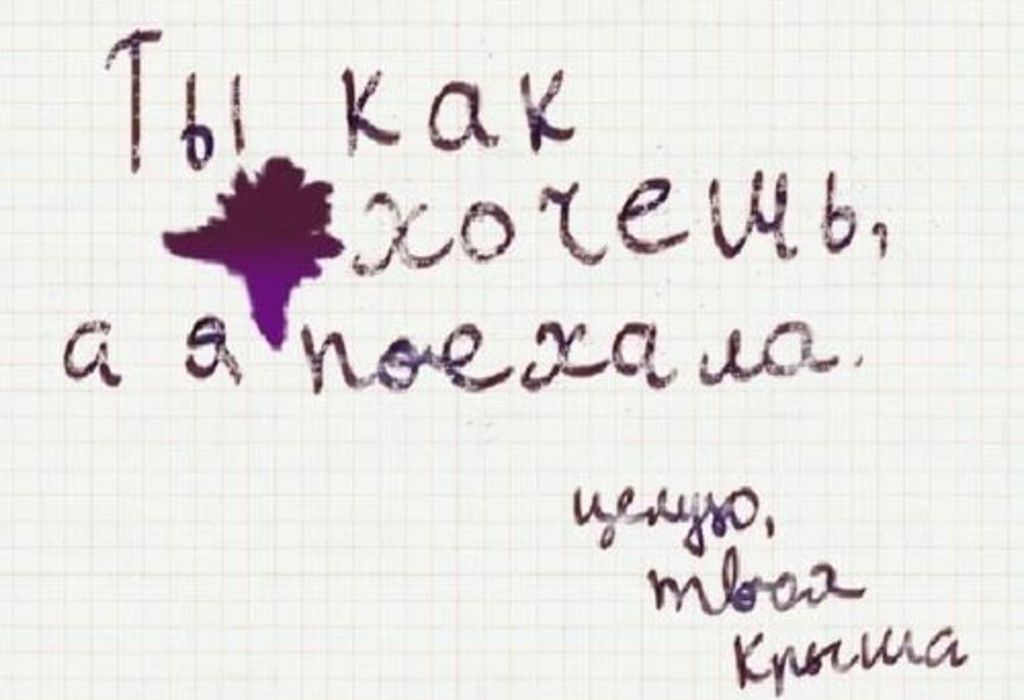 Ты как
хочешь,
а я поехала.
целую,
твоя
крыша